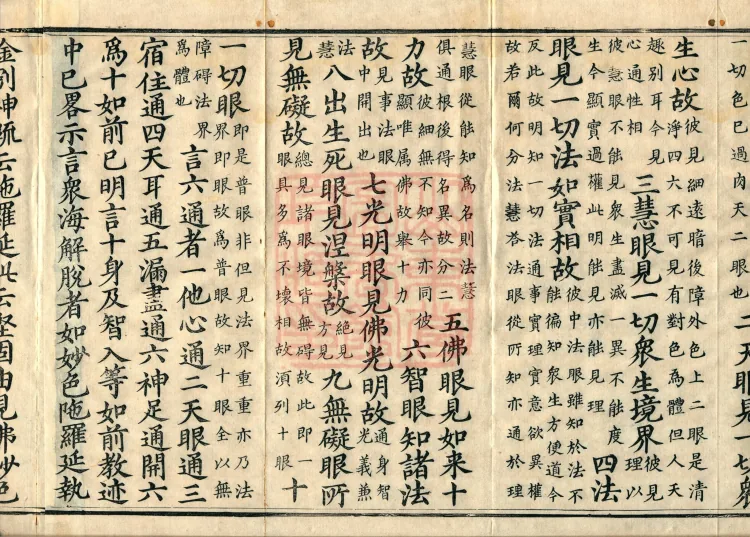 一切色已過肉天二眼也二天眼見一切衆
生心故彼見細遠暗後障外色上二眼是清淨四六不可見有對色爲體但人天
趣别耳今見心通性相三慧眼見一切衆生境界彼見理以
彼慧眼不能見衆生盡滅一異不能度生令顯實過權此明能見亦能見理四法
眼見一切法如實相故彼中法眼雖知於法不能徧知衆生方便道今
反此故明知一切法通事實理實意欲異權故若爾何分法慧荅法眼從所知亦通於理
慧眼從能知爲名則法慧俱通根後得名異故分二五佛眼見如来十
力故彼細無不知今亦同彼顯唯属佛故舉十力六智眼知諸法
故見事法眼中開出也七光明眼見佛光明故通身智光義兼
法慧八出生死眼見涅槃故絶見方見九無礙眼所
見無礙故總見諸眼境皆無碍故此即一眼具多爲不壞相故湏列十眼十
一切眼即是普眼非但見法界重重亦乃法界即眼故爲普眼故知十眼全以無
障碍法界爲體也言六通者一他心通二天眼通三
宿住通四天耳通五漏盡通六神足通開六
爲十如前已明言十身及智入等如前教迹
中已畧示言衆海解脫者如妙色陁羅延執
金剛神䟽云陁羅延此云堅固由見佛妙色